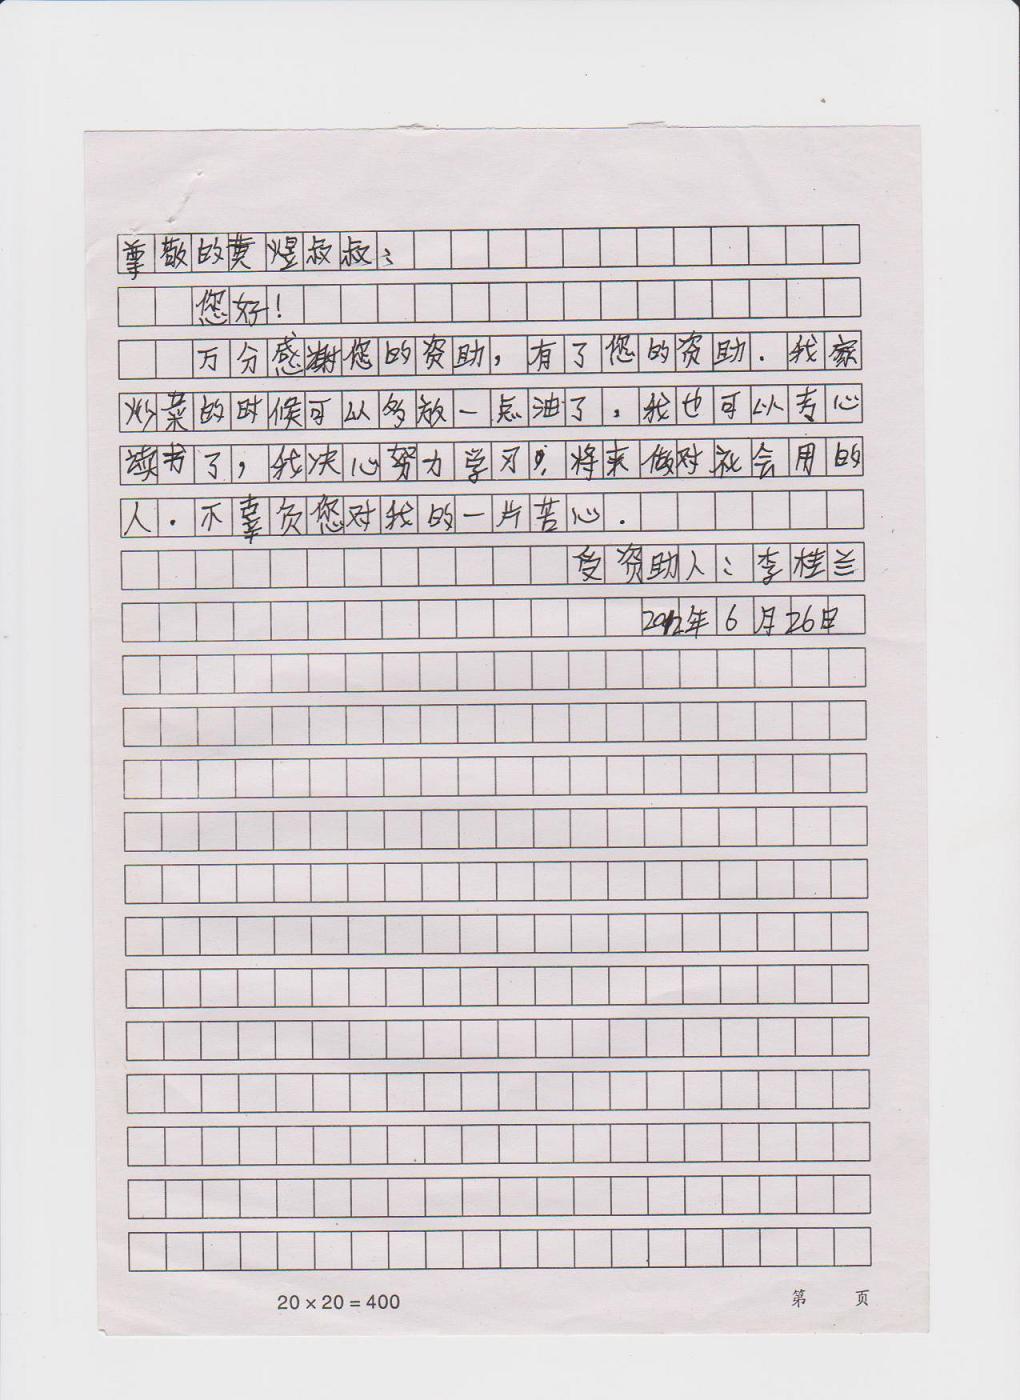 尊敬的黄煜叔叔：
您好！
万分感谢您的资助，有了您的资助．我家
炒菜的时候可以多放一点油了，我也可以专心
读书了，我决心努力学习，将来做对社会用的
人．不辜负您对我的一片苦心．
受资助人：李桂兰
2012年6月26日
20×20=400
第 页